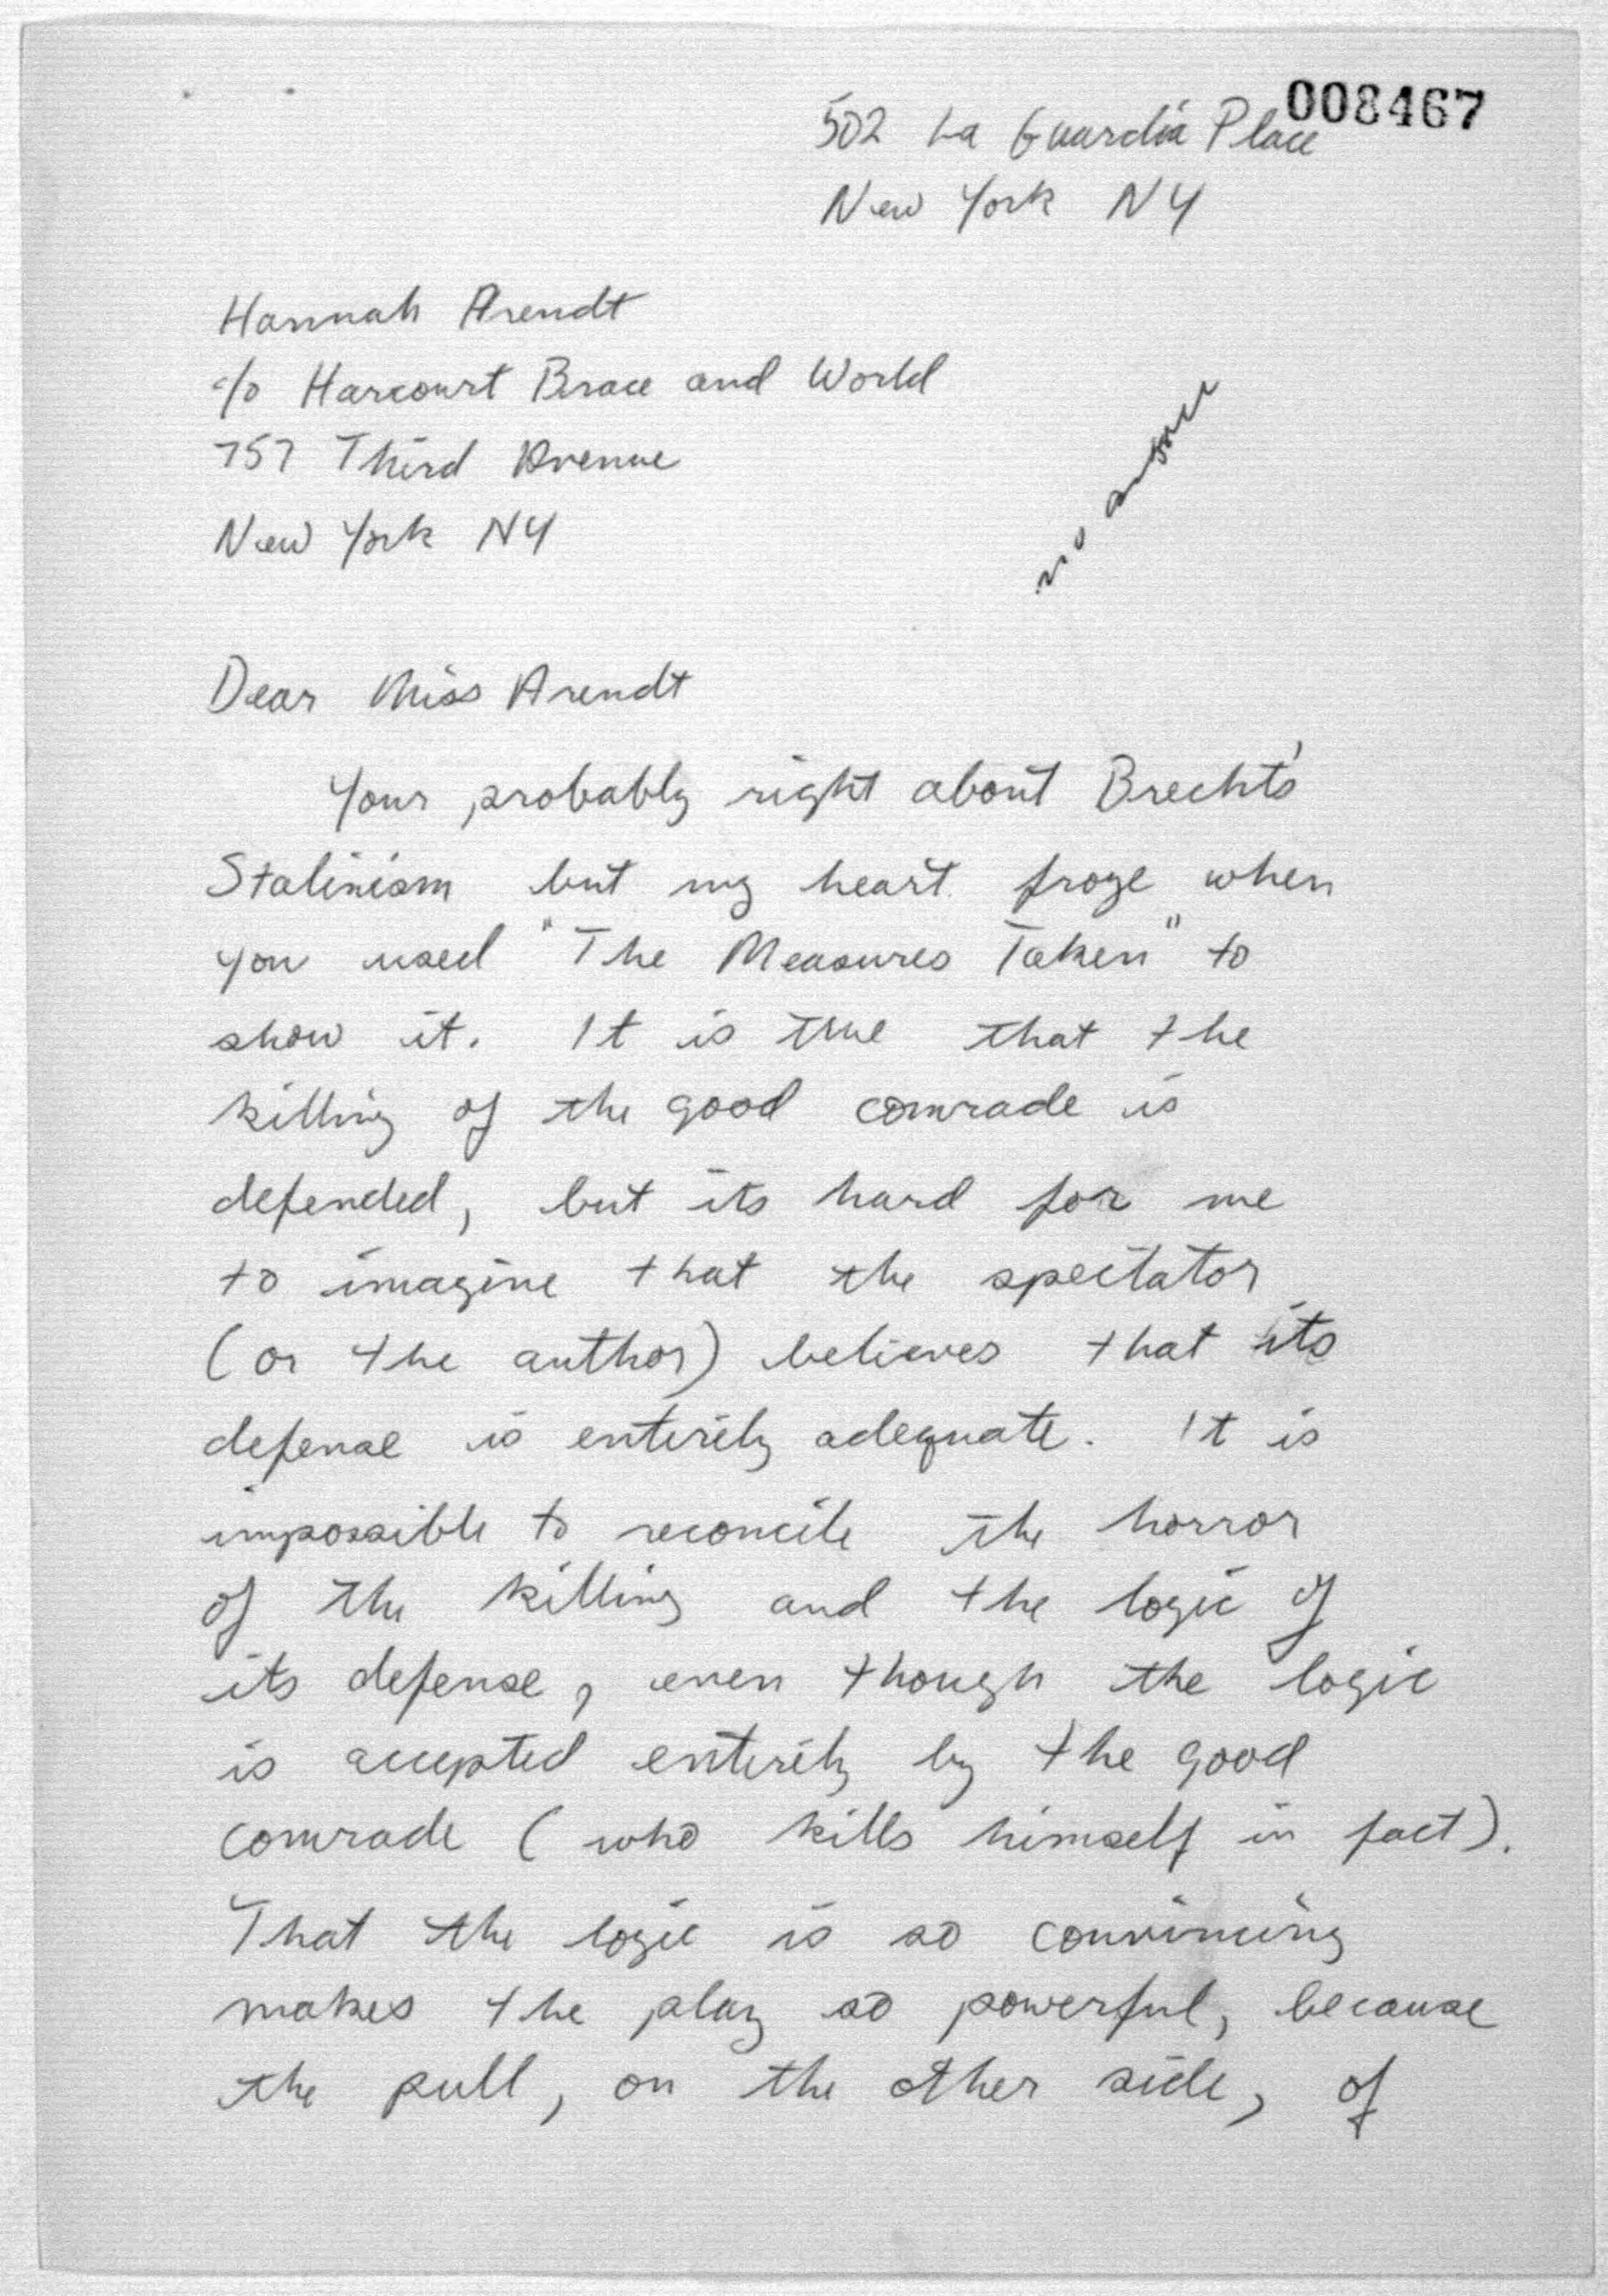 008467
502 La Guardia Place
New York NY
Hannah Arendt
c/o Harcourt Brace and World
757 Third Avenue
New York NY
no answer
Dear Miss Arendt
Your probably right about Brecht's
Stalinism but my heart froze when
you used "The Measures Taken" to
show it. It is true that the
killing of the good comrade is
defended, but its hard for me
to imagine that the spectator
(or the author) believes that its
defense is entirely adequate. It is
impossible to reconcile the horror
of the killing and the logic of
its defense, even though the logic
is accepted entirely by the good
comrade (who kills himself in fact).
That the logic is so convincing
makes the play so powerful, because
the pull, on the other side, of